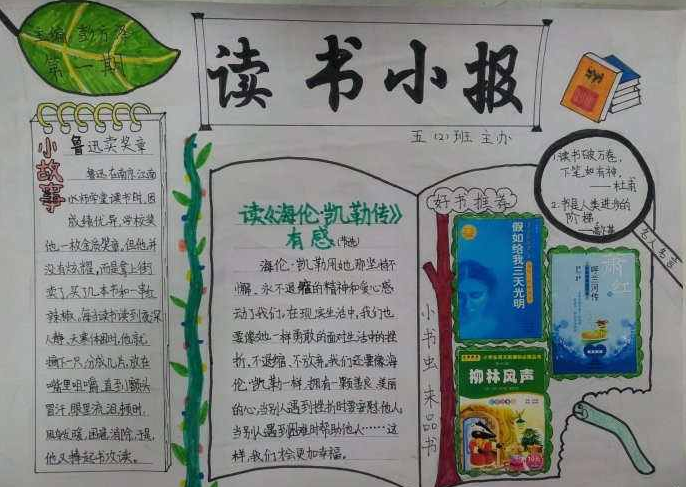 主编
第一期
读书小报
五(2)班 主办
小故事
鲁迅卖奖章
鲁迅在南京江南
水师学堂读书时,因
成绩优异,学校奖
他一枚金质奖章,但他并
没有炫耀,而是拿上街
卖了,买了几本书和一串红
辣椒,每当读书读到夜深
人静、天寒体困时,他就
摘下一只,分成几片,放在
嘴里咀嚼,直到额头
冒汗,眼里流泪,
困意消除,于是,
他又捧起书攻读。
读《海伦·凯勒传》
有感
海伦·凯勒用她那坚持不
懈、永不退缩的精神和爱心感
动了我们,在现实生活中,我们也
要像她一样勇敢的面对生活中的挫
折,不退缩、不放弃。我们还要像海
伦·凯勒一样,拥有一颗善良、美丽
的心,当别人遇到挫折时要安慰他人,
当别人遇到困难时帮助他人……这
样,我们才会更加幸福。
好书推荐
小书虫 来品书
假如给我三天光明
柳林风声
萧红
呼兰河传
1.读书破万卷,
下笔如有神。
——杜甫
2.书是人类进步的
阶梯。
——高尔基
名人名言